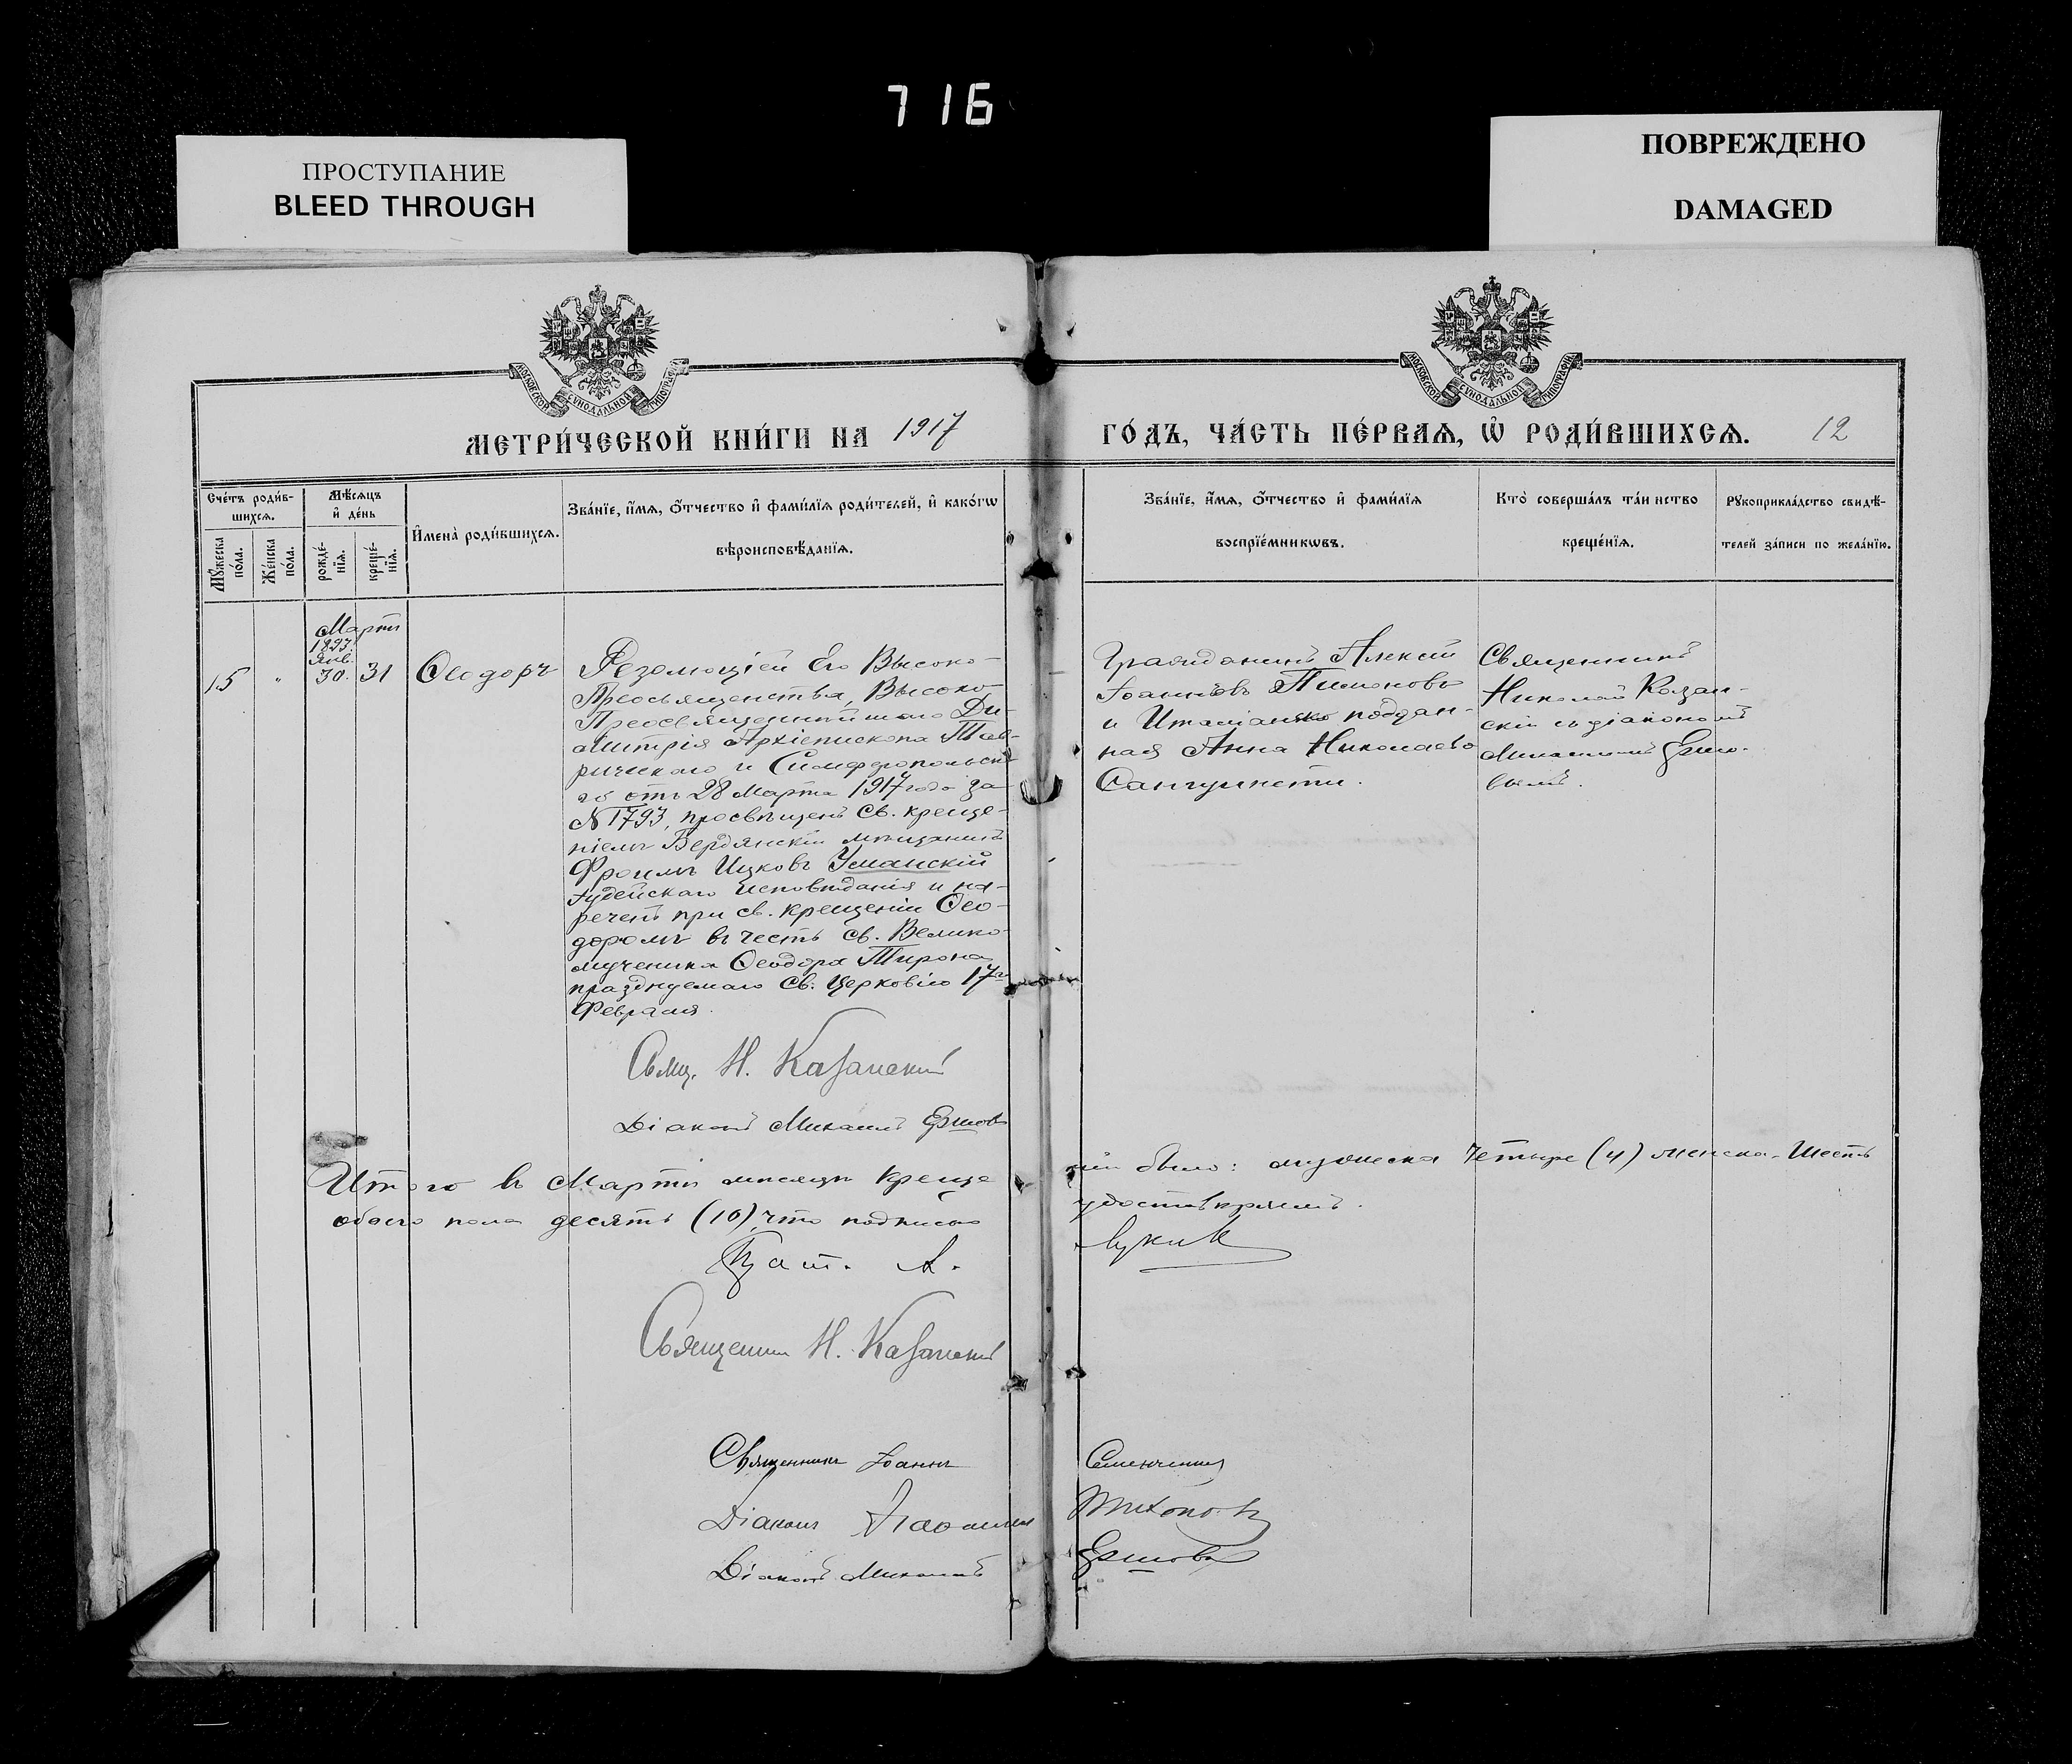 716
ПРОСТУПАНИЕ
BLEED THROUGH
ПОВРЕЖДЕНО
DAMAGED
МОСКОВСКОЙ СѴНОДАЛЬНОЙ ТИПОГРАФІИ
МОСКОВСКОЙ СѴНОДАЛЬНОЙ ТИПОГРАФІИ
МЕТРИ́ЧЕСКОЙ КНИ́ГИ НА 1917
ГО́ДЪ, ЧА́СТЬ ПЕ́РВАѦ, Ѡ҆ РОДИ́ВШИХСѦ. 12
Сче́тъ роди́в-
шихсѧ.
Мꙋ́жеска по́ла.
Же́нска по́ла.
Мѣ́сѧцъ
и҆ де́нь
рожде́-
нїѧ.
креще́-
нїѧ.
И҆мена̀ роди́вшихсѧ.
Зва́нїе, и҆́мѧ, ѻ҆́тчество и҆ фами́лїѧ роди́телей, и҆ како́гѡ
вѣроисповѣ́данїѧ.
Зва́нїе, и҆́мѧ, ѻ҆́тчество и҆ фами́лїѧ
воспрїе́мникѡвъ.
Кто̀ соверша́лъ та́инство
креще́нїѧ.
Рꙋкоприкла́дство свидѣ́-
телей за́писи по жела́нїю.
Мартъ
1893.
Янв.
15 " 30. 31
Ѳеодоръ
Резолюціей Его Высоко-
Преосвященства, Высоко-
Преосвященнѣйшаго Ди-
митрія Архіепископа Тав-
рическаго и Симферопольска-
го отъ 28 Марта 1917 года за
№ 1793, просвѣщенъ Св. креще-
ніемъ Бердянскій мѣщанинъ
Фроимъ Ицковъ Уманскій
іудейскаго исповѣданія и на-
реченъ при св. крещеніи Ѳео-
доромъ въ честь св. Велико-
мученика Ѳеодора Тирона
празднуемаго Св. Церковію 17го
Февраля.
Гражданинъ Алексій
Іоанновъ Пимоновъ
и Итальянско поддан-
ная Анна Николаева
Сангунети.
Священникъ
Николай Казан-
скій съ діакономъ
Михаиломъ Ершо-
вымъ.
Свящ. Н. Казанскій
Діаконъ Михаилъ Ершовъ
Итого въ Мартѣ мѣсяцѣ креще
ній было: мужеска Четыре (4) женска - Шесть
обоего пола десять (10), что подписью
удостовѣряемъ.
Свящeнник Н. Казанскій
Священникъ Іоаннъ
Діаконъ
Тихоновъ
Діаконъ Михаилъ Ершовъ